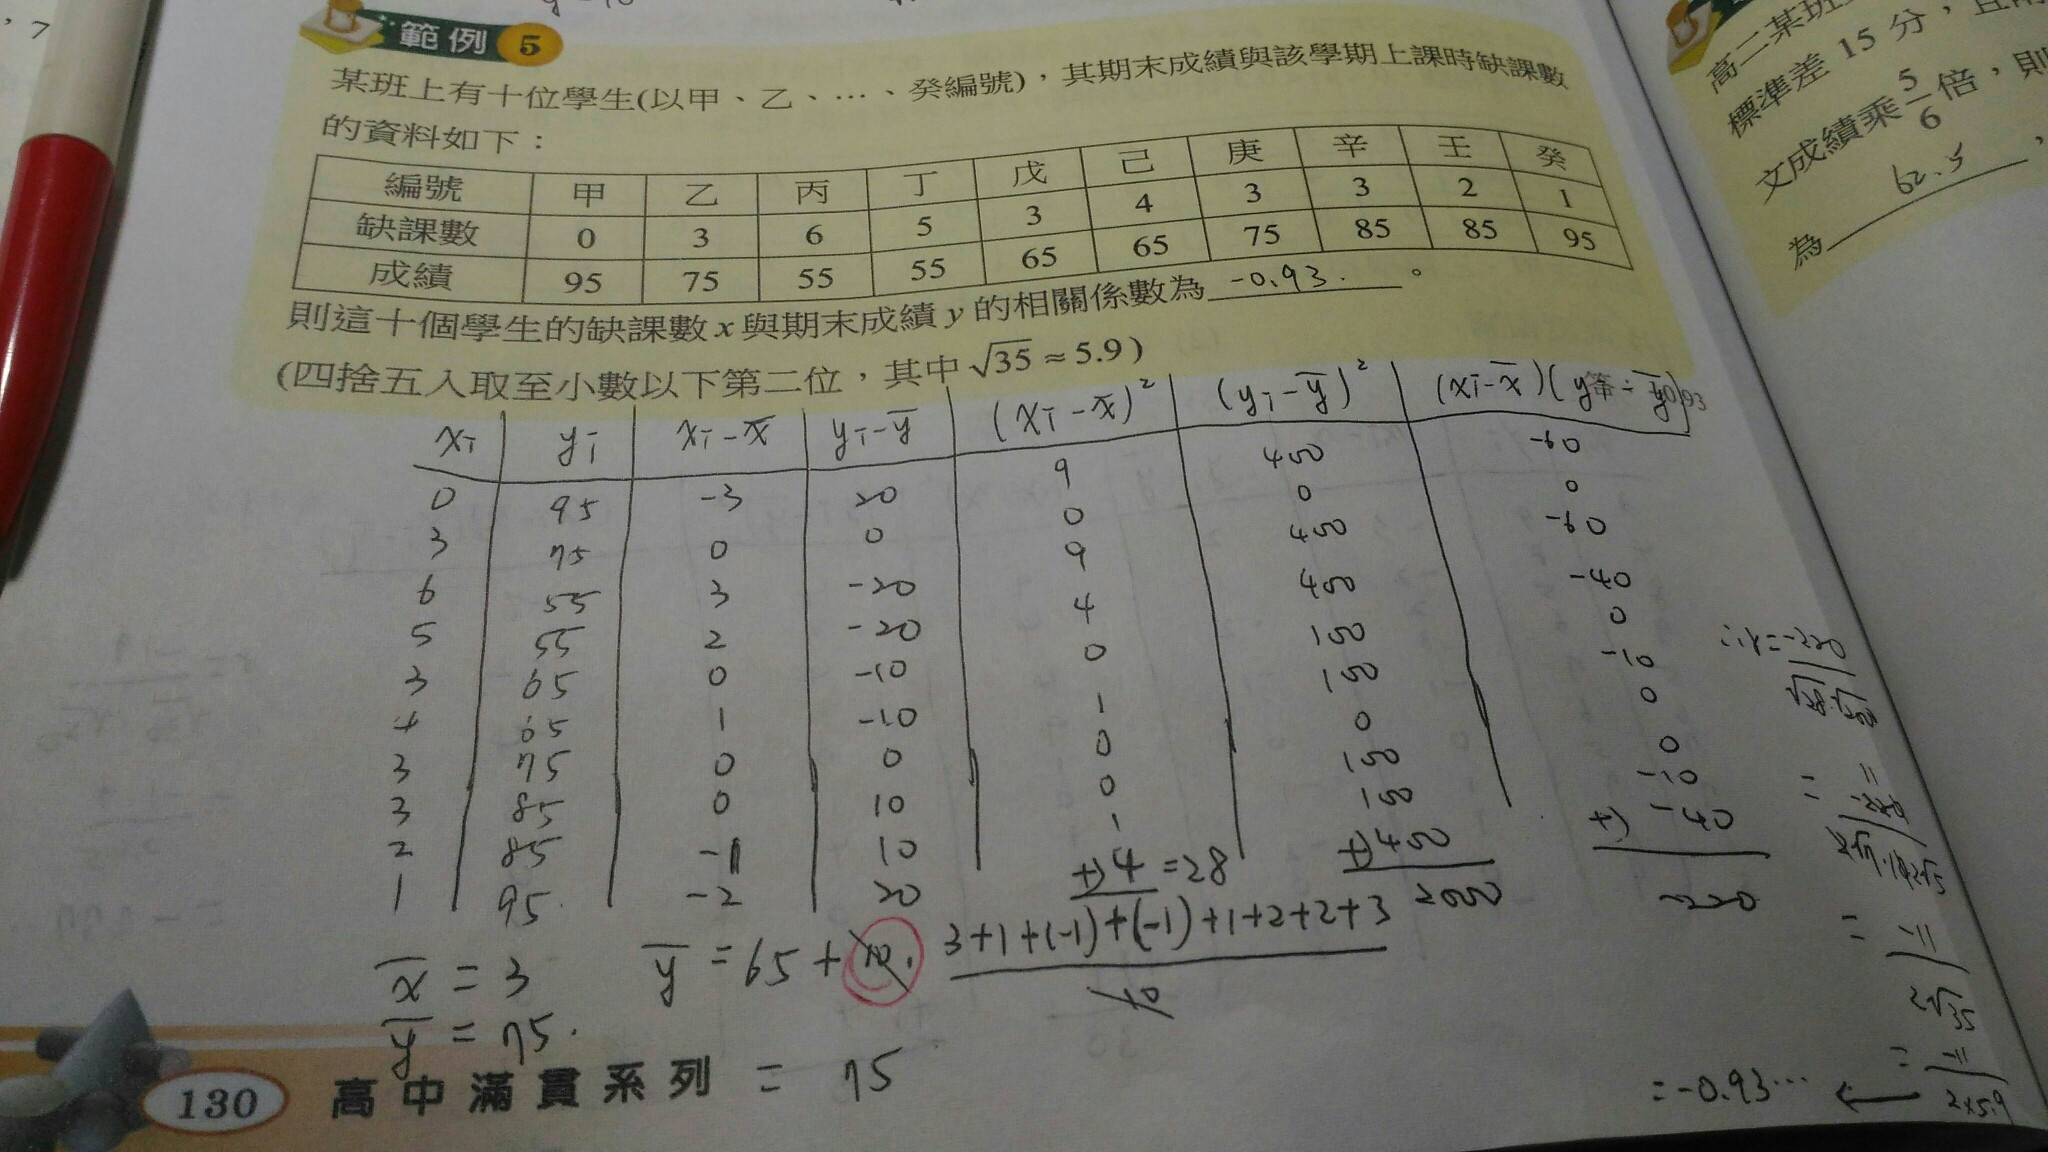 , 7
範例 5
某班上有十位學生(以甲、乙、…、癸編號),其期末成績與該學期上課時缺課數
的資料如下:
編號 甲 乙 丙 丁 戊 己 庚 辛 壬 癸
缺課數 0 3 6 5 3 4 3 3 2 1
成績 95 75 55 55 65 65 75 85 85 95
則這十個學生的缺課數 x 與期末成績 y 的相關係數為 -0.93. 。
(四捨五入取至小數以下第二位,其中 √35 ≈ 5.9)
xi yi xi-x̄ yi-ȳ (xi-x̄)² (yi-ȳ)² (xi-x̄)(
0 95 -3 20 9 400 -60
3 75 0 0 0 0 0
6 55 3 -20 9 400 -60
5 55 2 -20 4 400 -40
3 65 0 -10 0 100 0
4 65 1 -10 1 100 -10
3 75 0 0 0 0 0
3 85 0 10 0 100 0
2 85 -1 10 1 100 -10
1 95. -2 20 +) 4 = 28 +) 400 +) -40
2000 220
x̄ = 3
ȳ = 65 + 10. 3+1+(-1)+(-1)+1+2+2+3
10
ȳ = 75.
= 75
= -0.93…
2×5.9
130 高中滿貫系列
高二某班
標準差 15 分,且
文成績乘 5/6 倍,則
62.5 ,
為